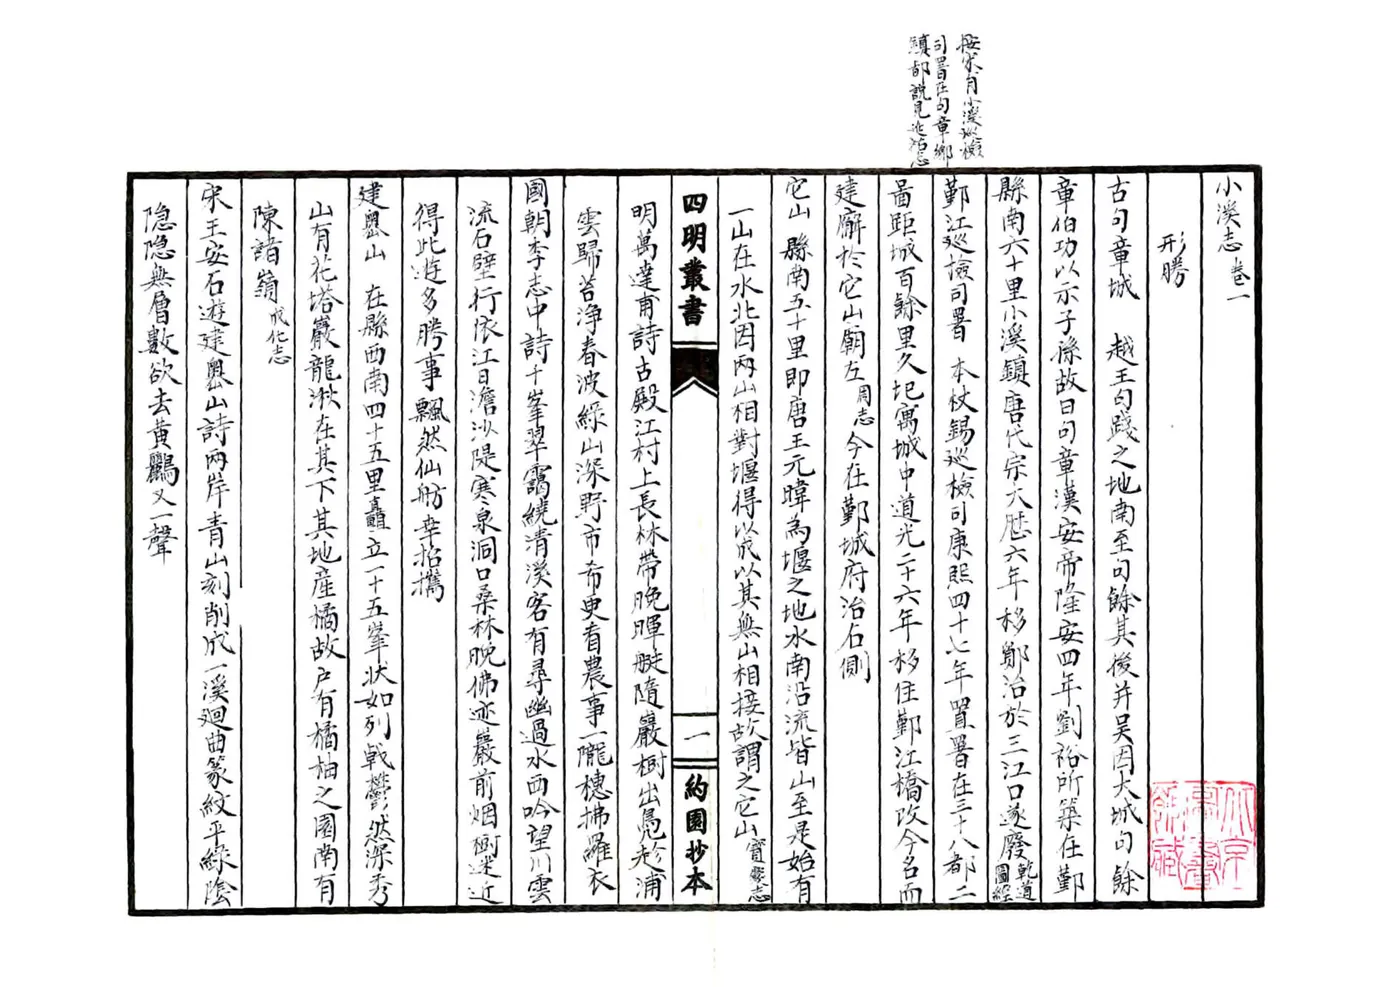 按宋有小溪巡檢
司署在句章鄉
鎮都說見延祐志
小溪志卷一
形勝
古句章城 越王句踐之地南至句餘其後并吳因大城句餘
章伯功以示子孫故曰句章漢安帝隆安四年劉裕所築在鄞
縣南六十里小溪鎮唐代宗大歷六年移鄮治於三江口遂廢乾道圖經
鄞江巡檢司署 本杖錫巡檢司康熙四十七年置署在三十八都二
啚距城百餘里久圮寓城中道光二十六年移住鄞江橋改今名而
建廨於它山廟左周志今在鄞城府治右側
它山 縣南五十里即唐王元暐為堰之地水南沿流皆山至是始有
一山在水北因兩山相對堰得以成以其無山相接故謂之它山寶慶志
四明叢書
一
約園抄本
明萬達甫詩古殿江村上長林帶晚暉艇隨巖樹出鳧趁浦
雲歸苔淨春波綠山深野市希更看農事一隴穗拂羅衣
國朝李志中詩千峯翠靄繞清溪客有尋幽過水西吟望川雲
流石壁行依江日澹沙隄寒泉洞口桑林晚佛迹巖前烟樹迷近
得此遊多勝事飄然仙舫幸招攜
建嶴山 在縣西南四十五里矗立一十五峯狀如列戟鬱然深秀
山有花塔巖龍湫在其下其地產橘故戶有橘柚之園南有
陳諸嶺成化志
宋王安石遊建嶴山詩兩岸青山刻削成一溪廻曲篆紋平綠陰
隱隱無層數欲去黃鸝又一聲